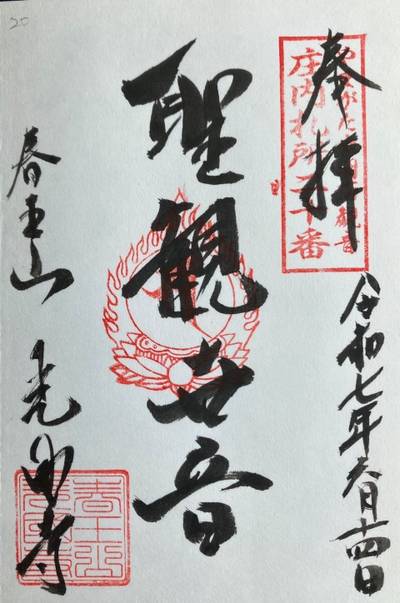 20
奉拝
庄内札所二十番
令和七年六月十四日
聖観世音
春王山 光国寺